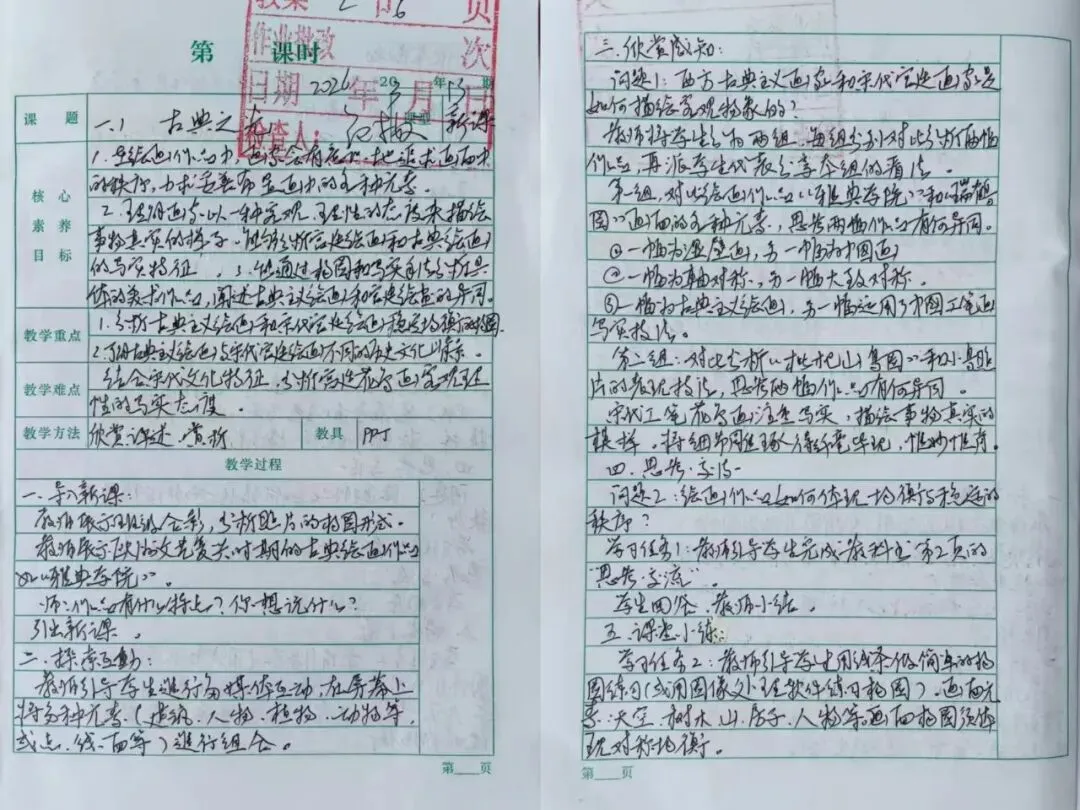 教案 2 日 6 页
第 课时
作业批改 次
日期 2026年3月13日
检查人：
课题 一.1 古典之 新课
核心素养目标
1.在绘画作品中，画家会有意识地追求画面中
的秩序，力求妥善布置画中的各种元素。
2.理解画家以一种客观、理性的态度来描绘
事物真实的样子，能分析宫廷绘画和古典绘画
的写实特征。3.能通过构图和写实手法分析具
体的美术作品，阐述古典主义绘画和宫廷绘画的异同。
教学重点
1.分析古典主义绘画和宋代宫廷绘画稳定均衡的构图。
2.了解古典主义绘画与宋代宫廷绘画不同的历史文化背景。
教学难点
结合宋代文化特征，分析宫廷花鸟画客观理
性的写实态度。
教学方法 欣赏、讲述、赏析 教具 PPT
教学过程
一.导入新课：
教师展示班级合影，分析照片的构图形式。
教师展示欧洲文艺复兴时期的古典绘画作品
如《雅典学院》。
师：作品有什么特点？你想说什么？
引出新课。
二.探索互动：
教师引导学生进行多媒体互动，在屏幕上
将多种元素（建筑、人物、植物、动物等，
或点、线、面等）进行组合。
第 页
三.欣赏感知：
问题1：西方古典主义画家和宋代宫廷画家是
如何描绘客观物象的？
教师将学生分为两组，每组分别对比分析两幅
作品，再派学生代表分享本组的看法。
第一组，对比绘画作品《雅典学院》和《瑞鹤
图》画面的各种元素，思考两幅作品有何异同。
①一幅为湿壁画，另一幅为中国画
②一幅为轴对称，另一幅大致对称。
③一幅为古典主义绘画，另一幅运用了中国工笔画
写实技法。
第二组：对比分析《枇杷山鸟图》和小鸟照
片的表现技法，思考两幅作品有何异同。
宋代工笔花鸟画注重写实，描绘事物真实的
模样，将细节刻画得纤毫毕现，惟妙惟肖。
四.思考·交流
问题2：绘画作品如何体现均衡与稳定的
秩序？
学习任务1：教师引导学生完成教科书第2页的
“思考·交流”。
学生回答，教师小结。
五.课堂小练：
学习任务2：教师引导学生用线条做简单的构
图练习（或用图像处理软件练习构图）。画面元
素：天空、树木、山、房子、人物等，画面构图须体
现对称均衡。
第 页